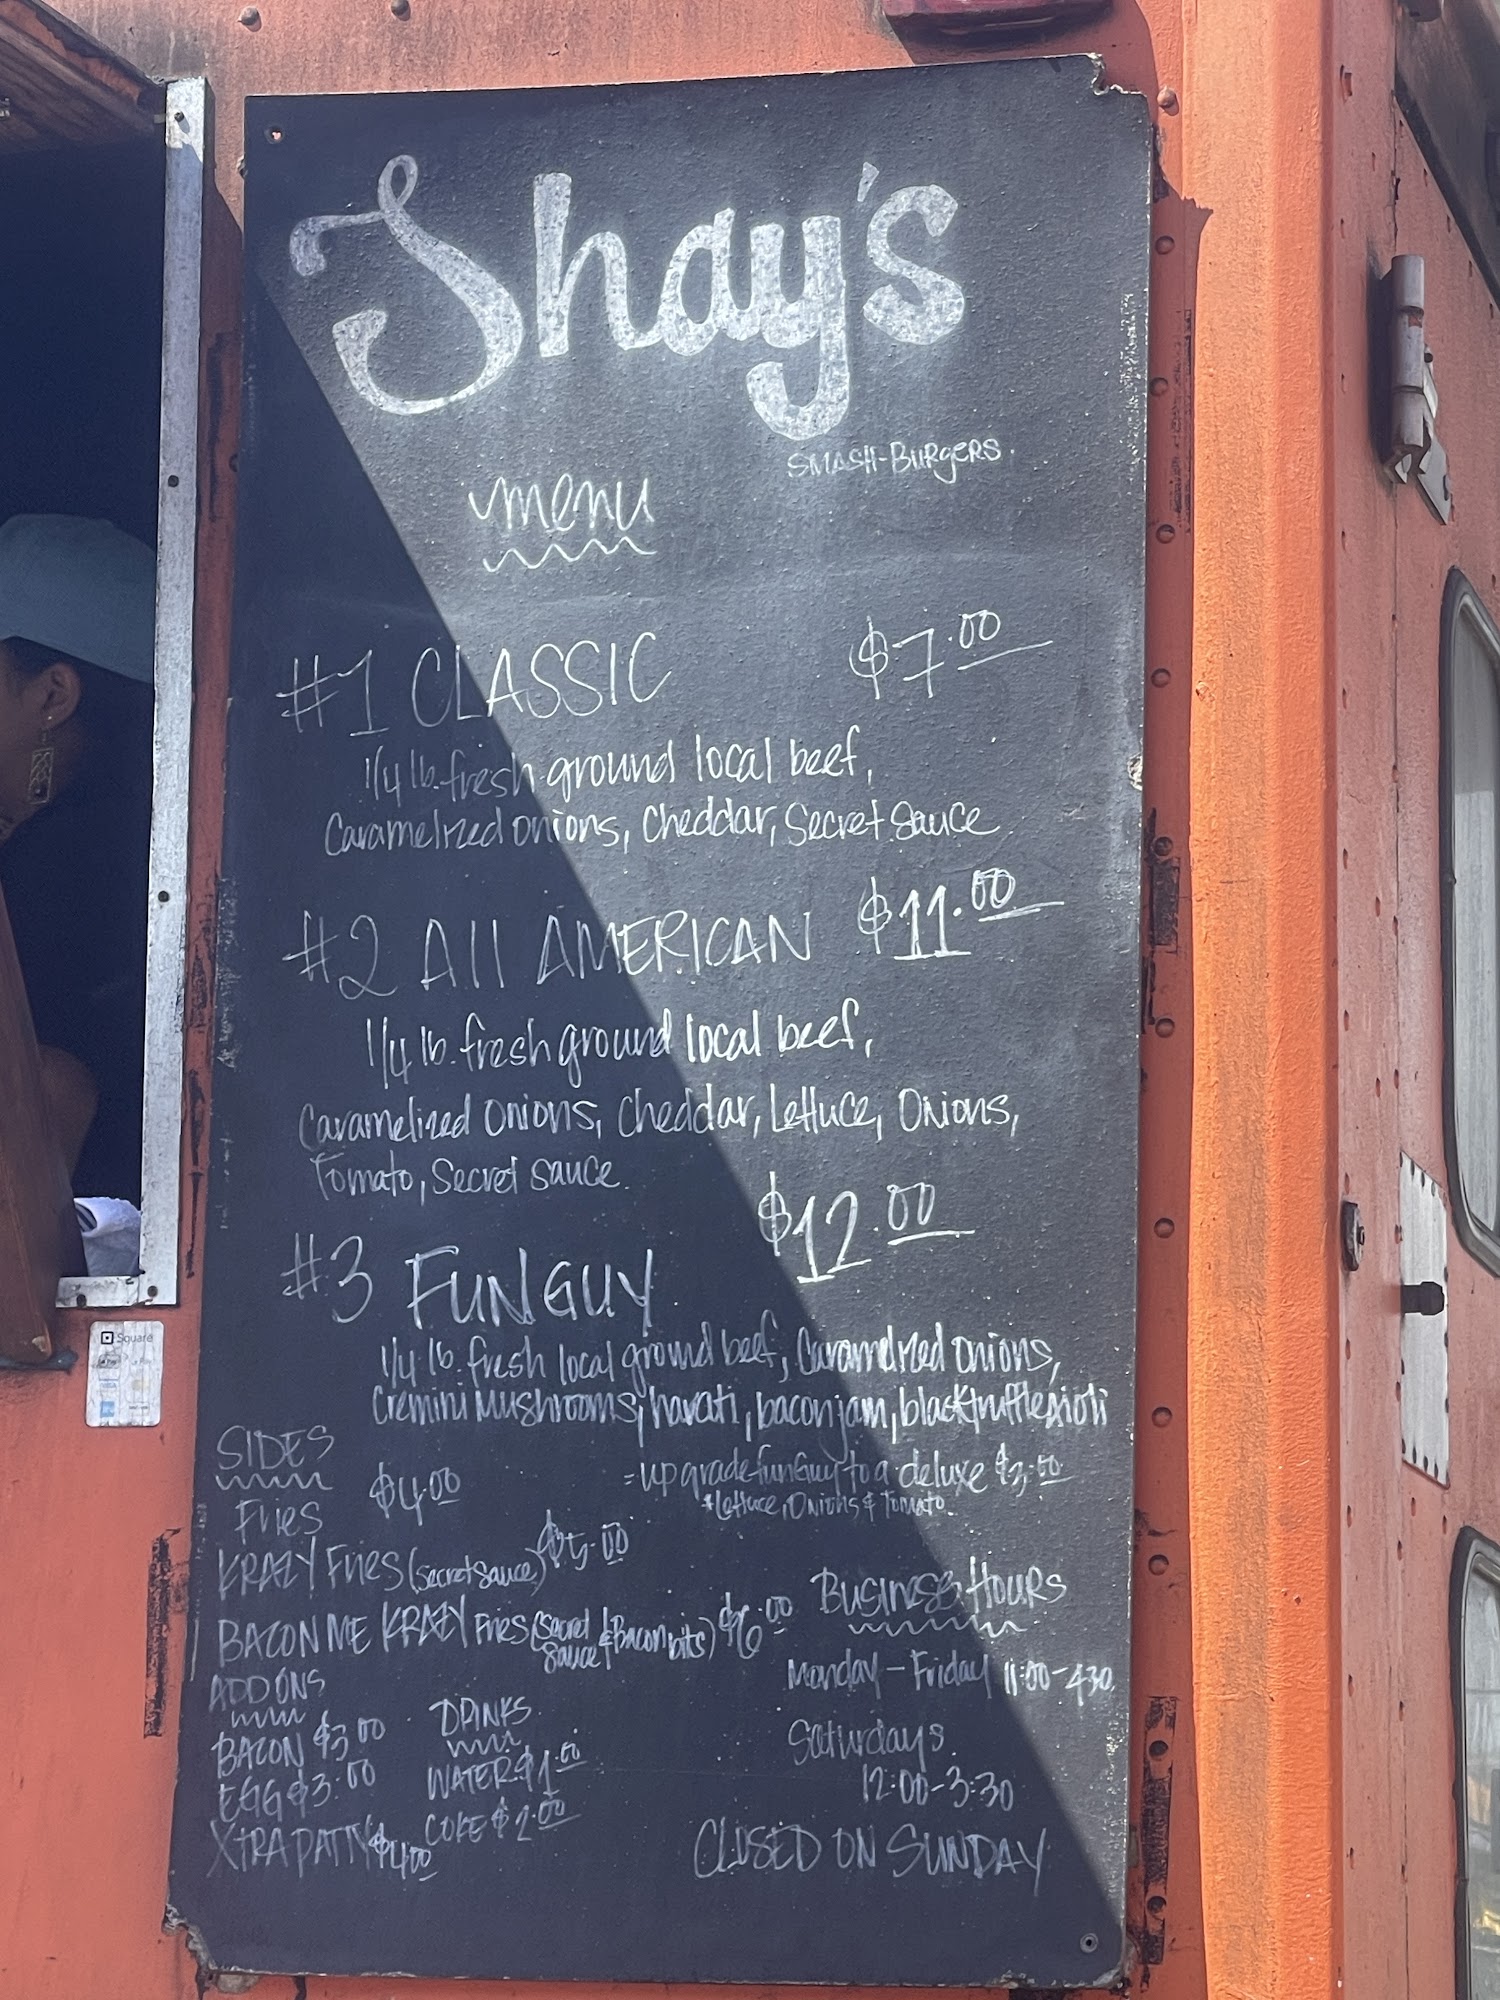 Shay's
SMASH-BURGERS.
menu
#1 CLASSIC $7.00
1/4 lb. fresh ground local beef,
Caramelized onions, Cheddar, Secret Sauce
#2 All AMERICAN $11.00
1/4 lb. fresh ground local beef,
Caramelized onions, Cheddar, Lettuce, Onions,
Tomato, Secret Sauce.
#3 FUNGUY $12.00
1/4 lb. fresh local ground beef, Caramelized onions,
Cremini Mushrooms, havati, bacon jam, black truffle aioli
= upgrade funGuy to a deluxe $3.00
*Lettuce, Onions & Tomato
SIDES
Fries $4.00
KRAZY Fries (Secret Sauce) $5.00
BACON ME KRAZY Fries (Secret Sauce & Bacon bits) $6.00
ADD ONS
BACON $3.00
EGG $3.00
XtRA PATTY $4.00
DRINKS
WATER $1.00
COKE $2.00
BUSINESS HOURS
Monday - Friday 11:00-4:30
Saturdays
12:00-3:30
CLOSED ON SUNDAY
Square